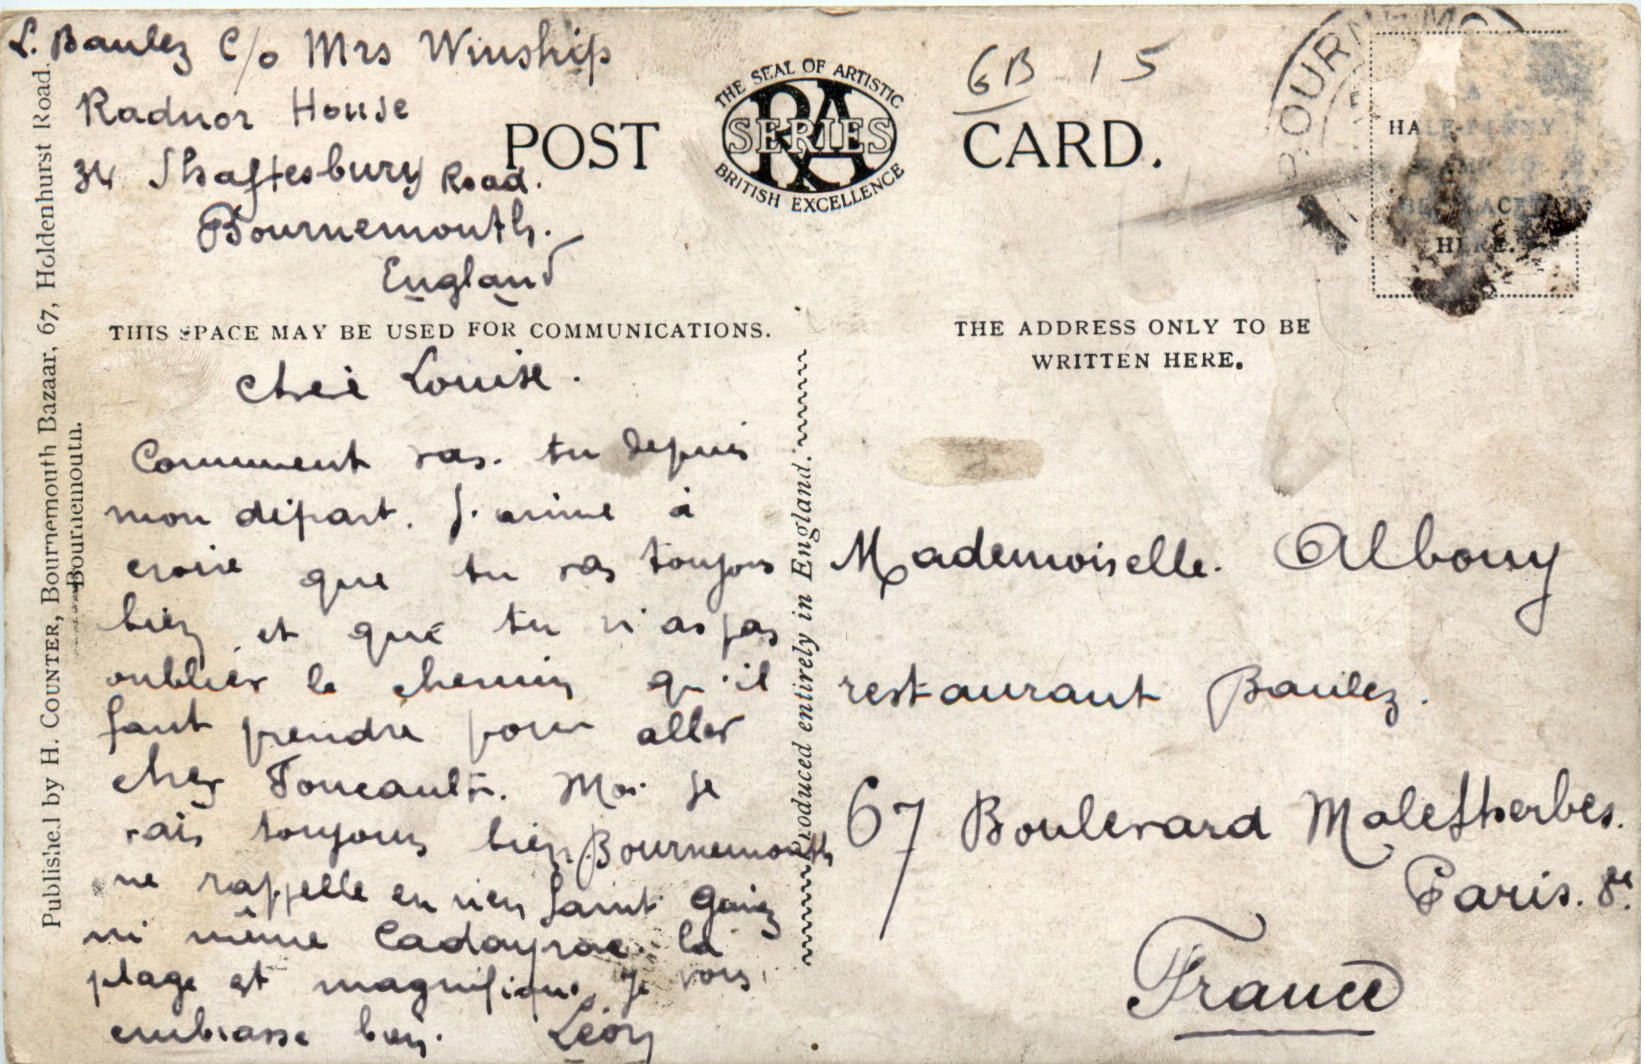 L. Baulez C/o Mrs Winship
Radnor House
34 Shaftesbury Road.
Bournemouth.
England
GB-15
POST CARD.
THE SEAL OF ARTISTIC
RA
SERIES
BRITISH EXCELLENCE
BOURNEMO
HALF-PENNY
PLACED
HERE.
THIS SPACE MAY BE USED FOR COMMUNICATIONS.
THE ADDRESS ONLY TO BE
WRITTEN HERE.
Cheie Louise.
Comment vas. tu depuis
mon départ. J. aime à
croire que tu vas toujours
bien et que tu n'as pas
oublier le chemin qu'il
faut prendre pour aller
chez Foucault. Moi je
vais toujours bien Bournemouth
ne rappelle en rien Saint
ni même Cadayrac. la
plage et magnifique je vous
embrasse bien. Léon
Mademoiselle. Albouy
restaurant Baulez.
67 Boulevard Malesherbes.
Paris. 8e.
France
Published by H. COUNTER, Bournemouth Bazaar, 67, Holdenhurst Road.
Bournemouth.
Produced entirely in England.